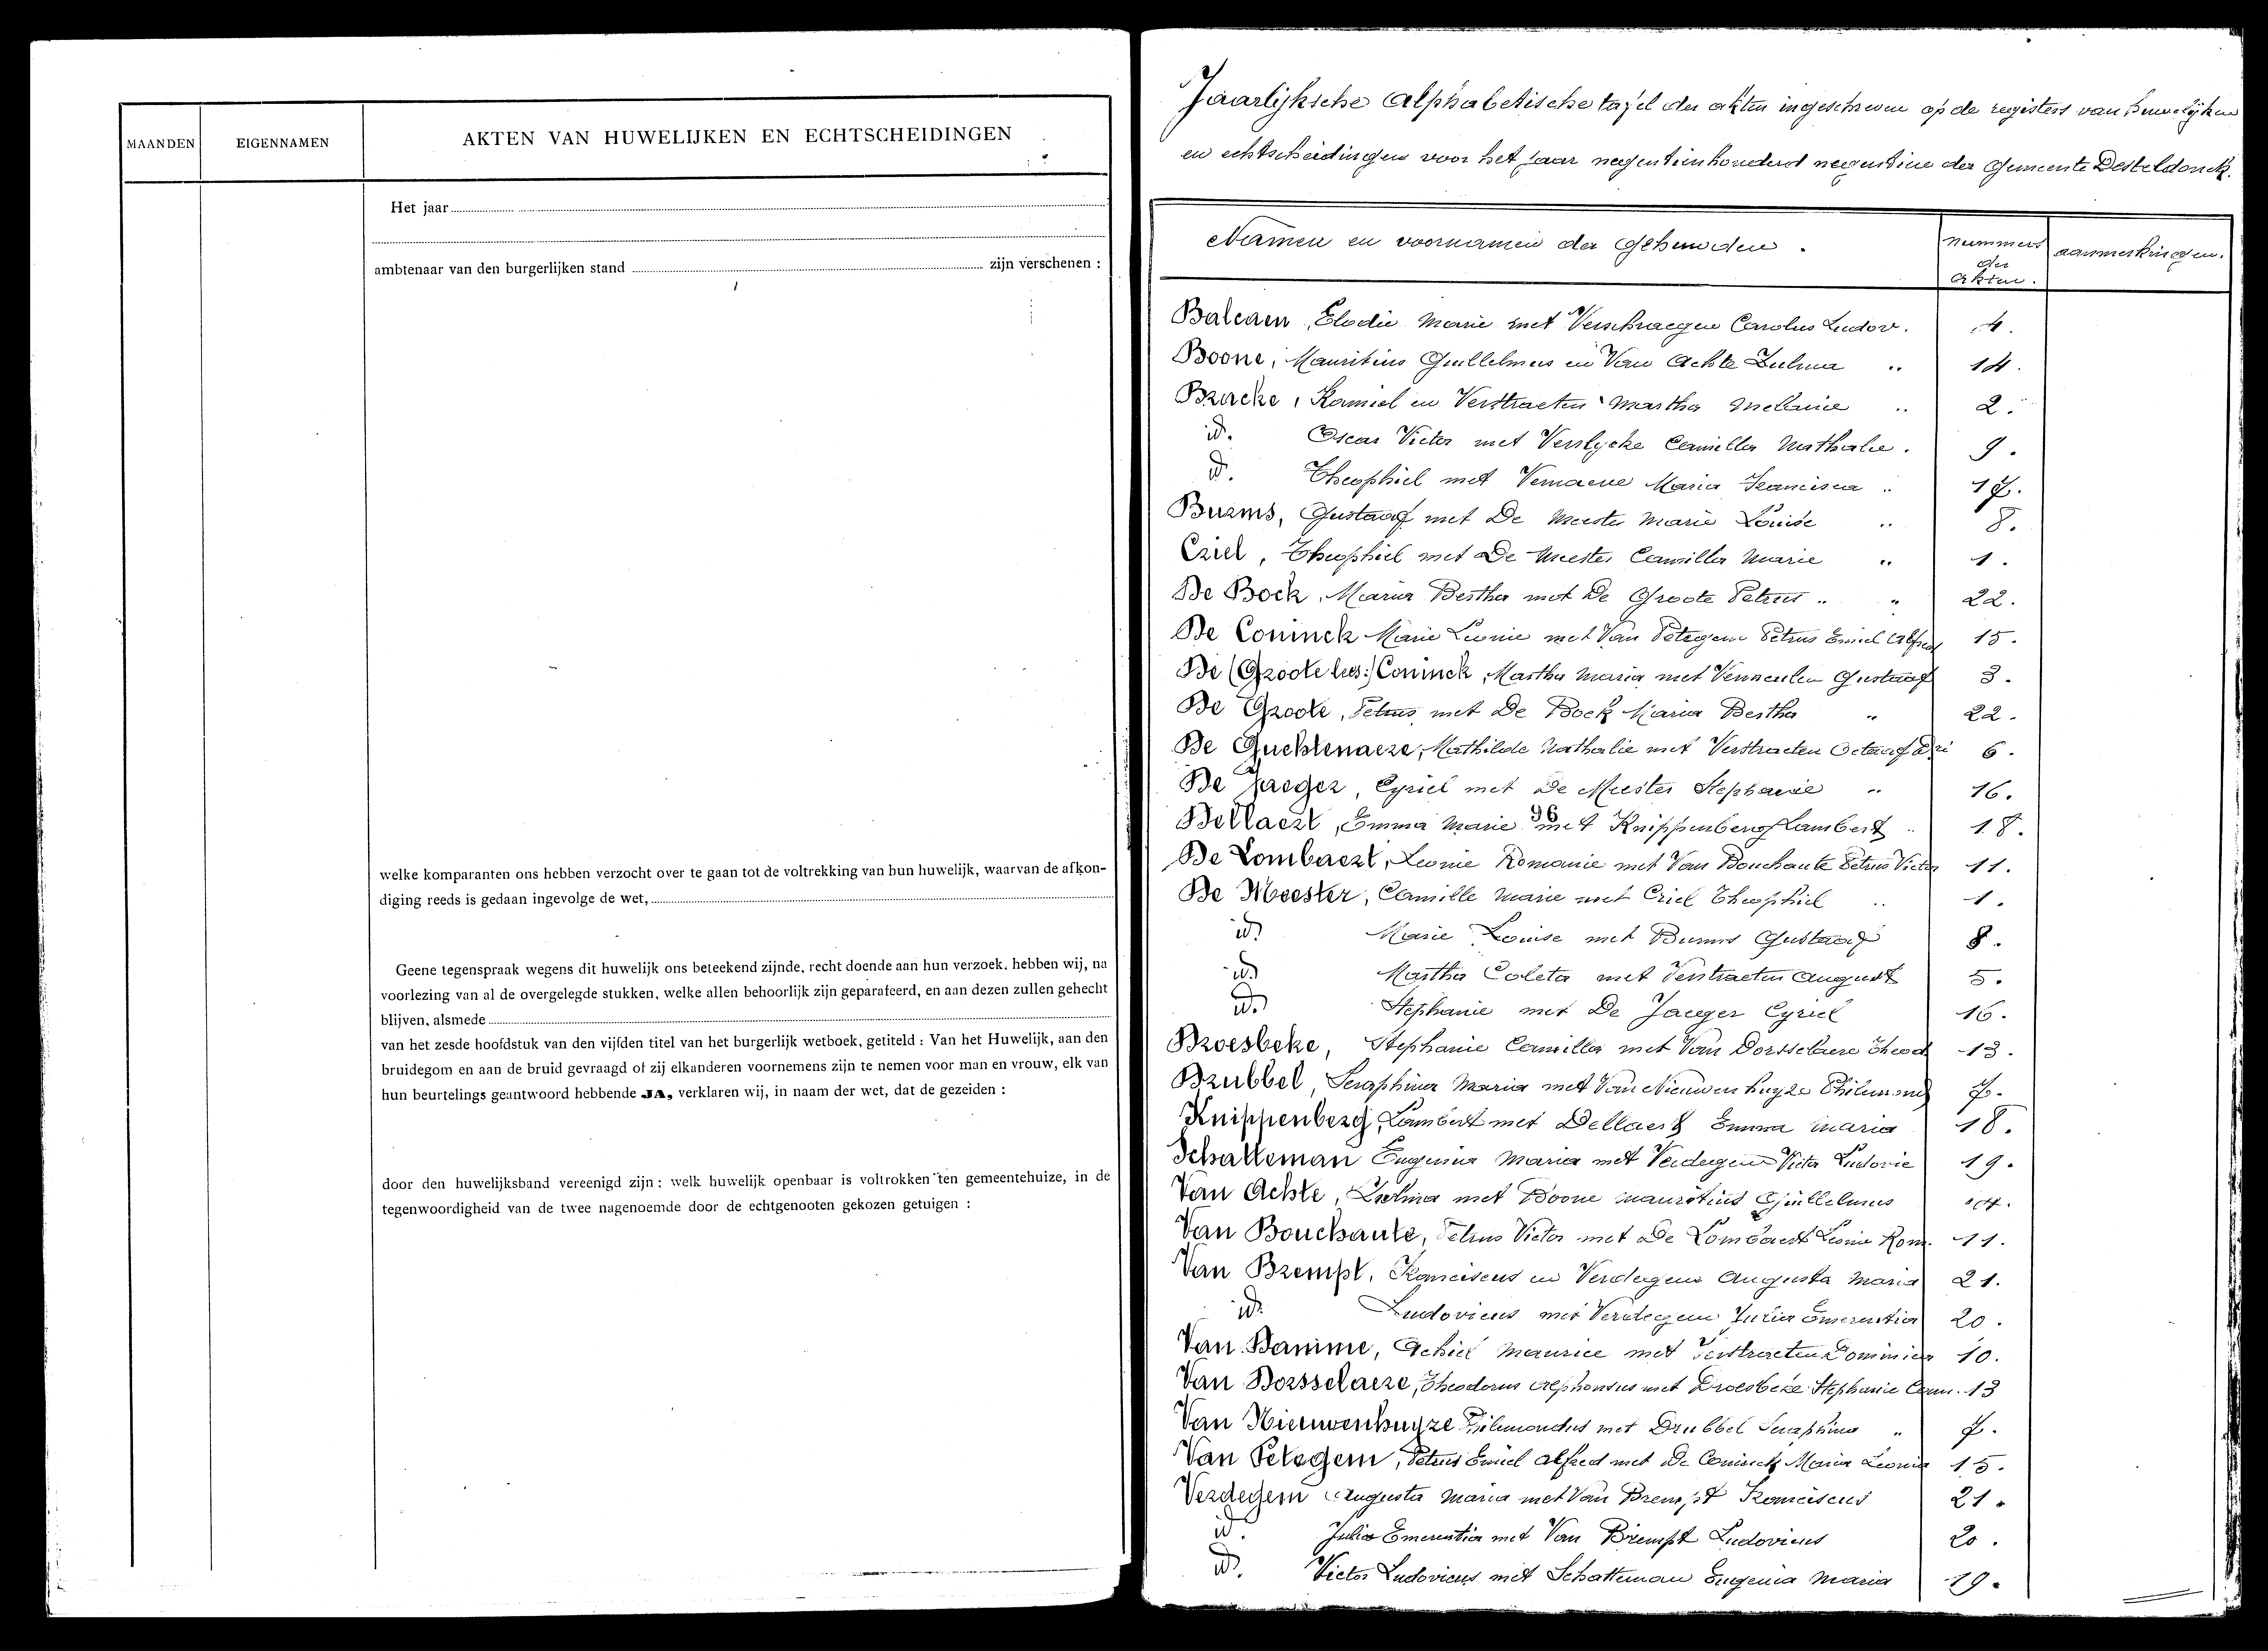 MAANDEN EIGENNAMEN AKTEN VAN HUWELIJKEN EN ECHTSCHEIDINGEN
Het jaar
ambtenaar van den burgerlijken stand zijn verschenen :
welke komparanten ons hebben verzocht over te gaan tot de voltrekking van hun huwelijk, waarvan de afkon-
diging reeds is gedaan ingevolge de wet,
Geene tegenspraak wegens dit huwelijk ons beteekend zijnde, recht doende aan hun verzoek, hebben wij, na
voorlezing van al de overgelegde stukken, welke allen behoorlijk zijn geparafeerd, en aan dezen zullen gehecht
blijven, alsmede
van het zesde hoofdstuk van den vijfden titel van het burgerlijk wetboek, getiteld : Van het Huwelijk, aan den
bruidegom en aan de bruid gevraagd of zij elkanderen voornemens zijn te nemen voor man en vrouw, elk van
hun beurtelings geantwoord hebbende JA, verklaren wij, in naam der wet, dat de gezeiden :
door den huwelijksband vereenigd zijn : welk huwelijk openbaar is voltrokken ten gemeentehuize, in de
tegenwoordigheid van de twee nagenoemde door de echtgenooten gekozen getuigen :
Jaarlijksche Alphabetische tafel der akten ingeschreven op de registers van huwelijken
en echtscheidingen voor het jaar negentienhonderd negentien der Gemeente Desteldonck.
Namen en voornamen der Gehuwden. nummers der akten. aanmerkingen.
Balcaen, Elodie Marie met Verschraegen Carolus Ludov. 4.
Boone, Mauritius Guillelmus en Van Achte Zulma .. 14.
Bracke, Kamiel en Verstraeten Martha Melanie .. 2.
id. Oscar Victor met Verslycke Camilla Nathalie. 9.
id. Theophiel met Vernaeve Maria Francisca .. 17.
Buams, Gustaaf met De Meester Marie Louise .. 8.
Criel, Theophiel met De Meester Camilla Marie .. 1.
De Bock, Maria Bertha met De Groote Petrus .. .. 22.
De Coninck Marie Leonie met Van Petegem Petrus Emiel Alfred 15.
De (Groote lees:) Coninck, Martha Maria met Vermeulen Gustaaf 3.
De Groote, Petrus met De Bock Maria Bertha .. 22.
De Guchtenaere, Mathilde Nathalie met Verstraeten Octaaf 6.
De Jaeger, Cyriel met De Meester Stephanie .. 16.
Dellaert, Emma Marie met Knippenberg Lambert .. 18.
De Lombaert, Leonie Romanie met Van Bouchaute Petrus Victor 11.
De Meester, Camille Marie met Criel Theophiel .. 1.
id. Marie Louise met Buams Gustaaf 8.
id. Martha Coleta met Verstraeten August 5.
id. Stephanie met De Jaeger Cyriel 16.
Droesbeke, Stephanie Camilla met Van Dorsselaere Theod 13.
Drubbel, Seraphina Maria met Van Nieuwenhuyze Philemond 7.
Knippenberg, Lambert met Dellaert Emma Maria 18.
Schatteman Eugenia Maria met Verdegem Victor Ludovic 19.
Van Achte, Zulma met Boone Mauritius Guillelmus 14.
Van Bouchaute, Petrus Victor met De Lombaert Leonie Rom. 11.
Van Brempt, Franciscus en Verdegem Augusta Maria 21.
id. Ludovicus met Verdegem Julia Emerentia 20.
Van Damme, Achiel Maurice met Verstraeten Dominica 10.
Van Dorsselaere, Theodorus Alphonsus met Droesbeke Stephanie Cam. 13
Van Nieuwenhuyze Philemondus met Drubbel Seraphina .. 7.
Van Petegem, Petrus Emiel Alfred met De Coninck Maria Leonia 15.
Verdegem Augusta Maria met Van Brempt Franciscus 21.
id. Julia Emerentia met Van Brempt Ludovicus 20.
id. Victor Ludovicus met Schatteman Eugenia Maria 19.